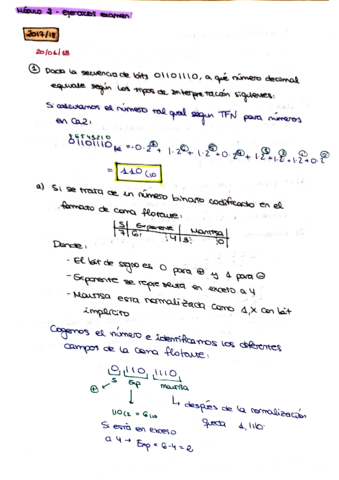 Módulo 2 - Ejercicios examen
2017/18
20/06/18
① Dada la secuencia de bits 01101110, a qué número decimal
equivale según los tipos de interpretación siguientes:
Si calculamos el número tal qual según TFN para números
en Ca2:
76543210
01101110
= 110₍₁₀
a) Si se trata de un número binario codificado en el
formato de coma flotante:
S Exponente Mantisa
7 6 4 3 0
Donde:
- El bit de signo es 0 para ⊕ y 1 para ⊖
- Exponente se representa en exceso a 4
- Mantisa está normalizada como 1,X con bit
implícito
Cogemos el número e identificamos los diferentes
campos de la coma flotante:
0 110 1110
⊕ S Exp mantisa
110₍₂ = 6₍₁₀
↳ después de la normalización
queda 1,1110
Si está en exceso
a 4 → Exp = 6-4 = 2